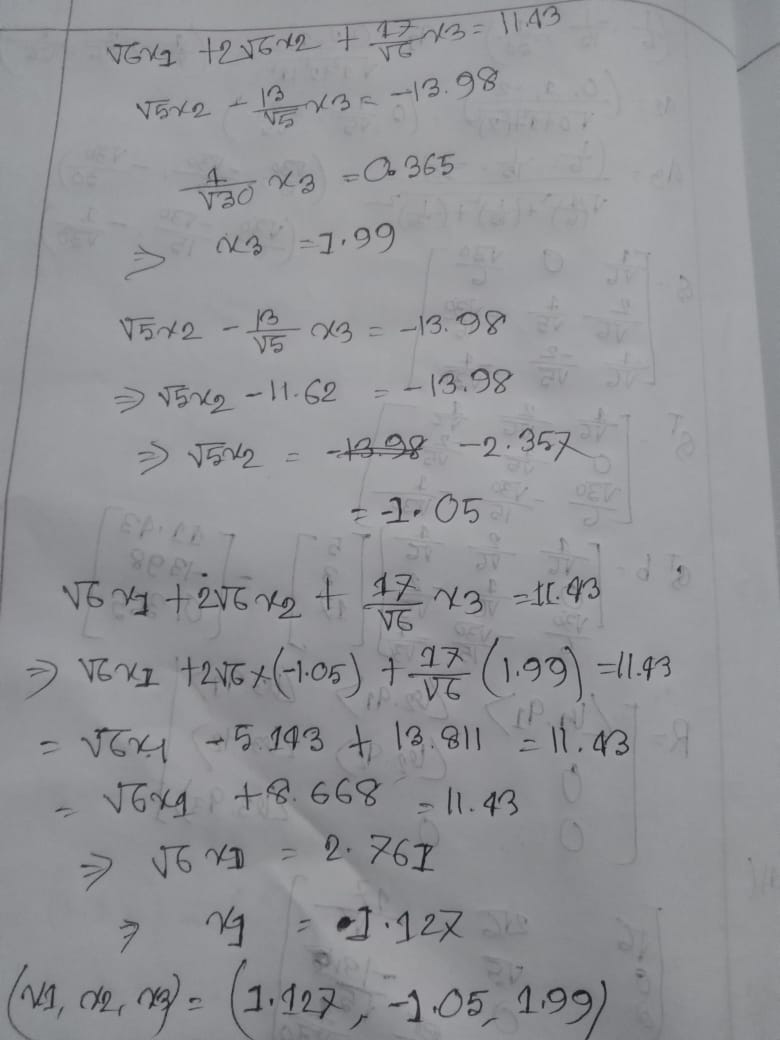 √6x1 + 2√6x2 + 17/√6 x3 = 11.43
√5x2 - 13/√5 x3 = -13.98
1/√30 x3 = 0.365
⇒ x3 = 1.99
√5x2 - 13/√5 x3 = -13.98
⇒ √5x2 - 11.62 = -13.98
⇒ √5x2 = -13.98 -2.357
= -1.05
√6x1 + 2√6x2 + 17/√6 x3 = 11.43
⇒ √6x1 + 2√6×(-1.05) + 17/√6 (1.99) = 11.43
= √6x1 - 5.143 + 13.811 = 11.43
= √6x1 + 8.668 = 11.43
⇒ √6x1 = 2.761
⇒ x1 = 1.127
(x1, x2, x3) = (1.127, -1.05, 1.99)